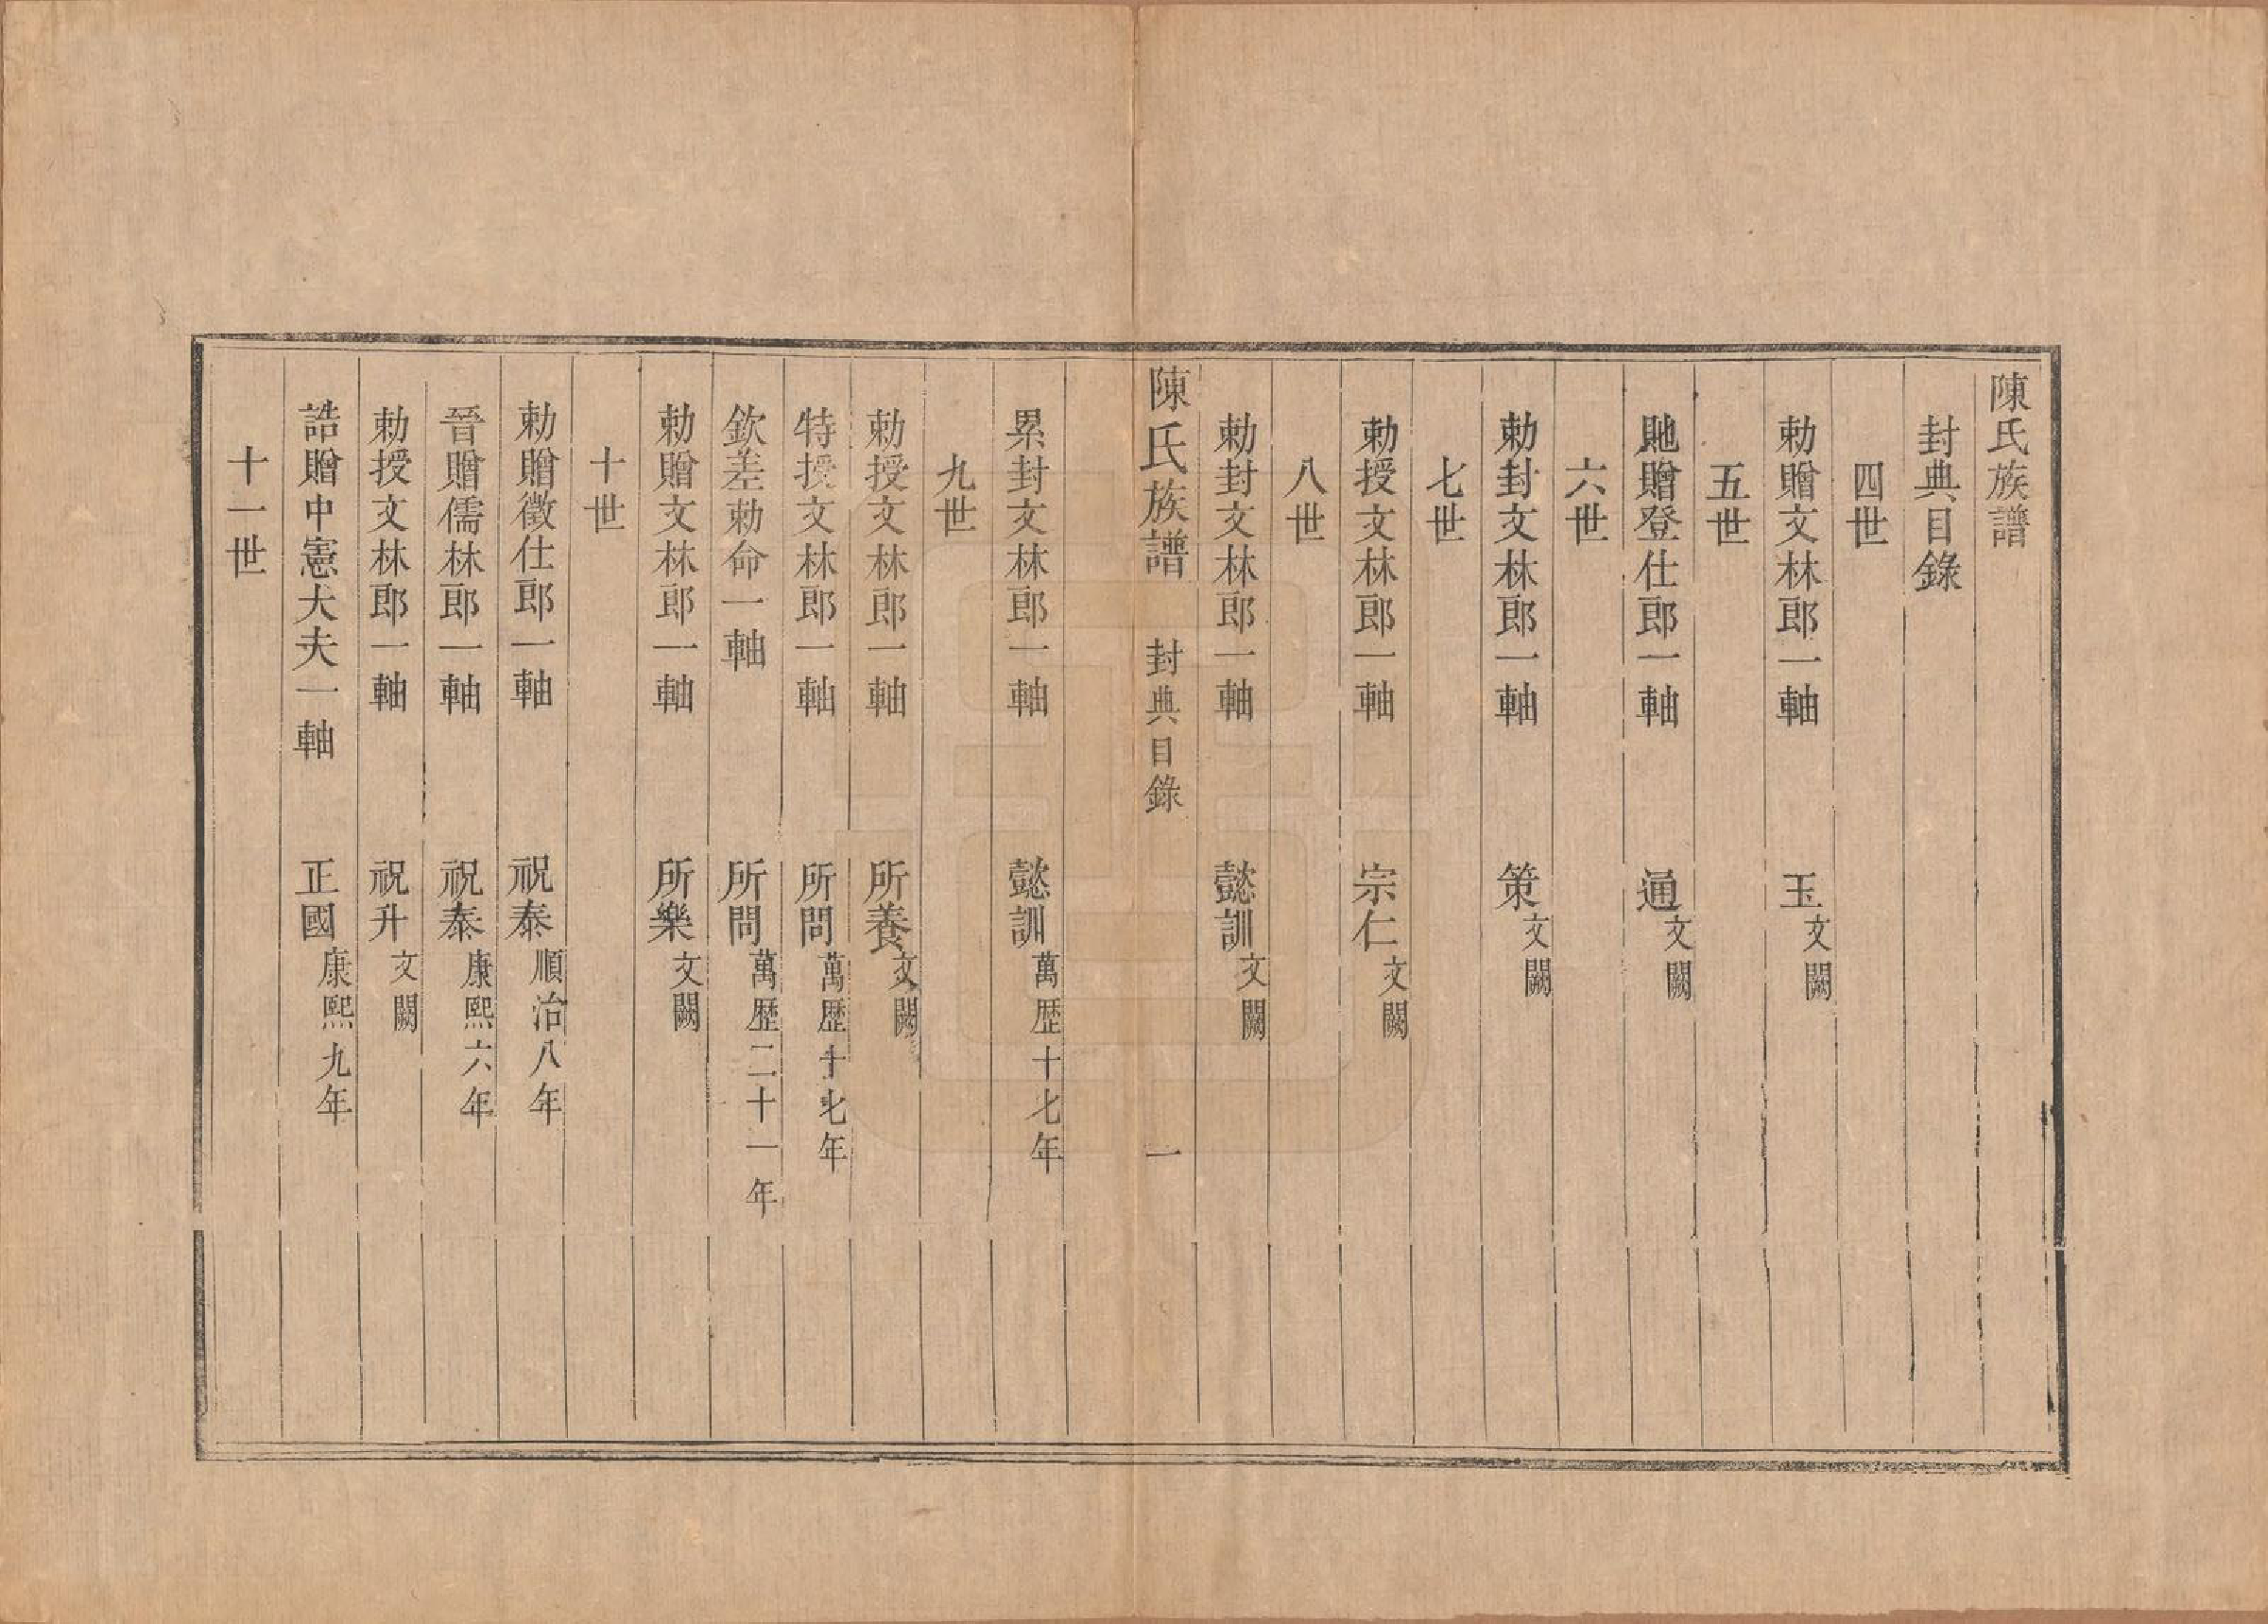 陳氏族譜
封典目錄
四世
勅贈文林郎一軸 玉 文闕
五世
貤贈登仕郎一軸 通 文闕
六世
勅封文林郎一軸 策 文闕
七世
勅授文林郎一軸 宗仁 文闕
八世
勅封文林郎一軸 懿訓 文闕
陳氏族譜 封典目錄 一
累封文林郎一軸 懿訓 萬歴十七年
九世
勅授文林郎一軸 所養 文闕
特授文林郎一軸 所問 萬歴十七年
欽差勅命一軸 所問 萬歴二十一年
勅贈文林郎一軸 所樂 文闕
十世
勅贈徵仕郎一軸 祝泰 順治八年
晉贈儒林郎一軸 祝泰 康熙六年
勅授文林郎一軸 祝升 文闕
誥贈中憲大夫一軸 正國 康熙九年
十一世